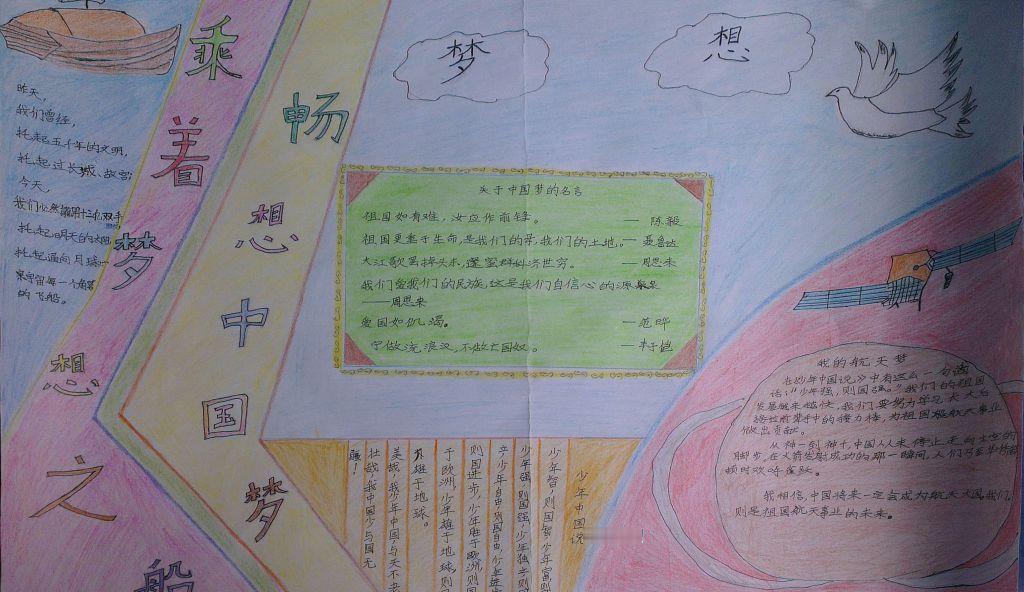 乘着梦想之船
畅想中国梦
梦想
昨天,
我们曾经,
托起五千年的文明,
托起过长城、故宫;
今天,
我们必然 十三亿双手
托起明天的太阳
托起通向月球
每一个角落
的飞船。
关于中国梦的名言
祖国如有难，汝应作前锋。 — 陈毅
祖国更重于生命,是我们的 ,我们的土地。— 聂鲁达
大江歌罢掉头东,邃密群科济世穷。 — 周恩来
我们爱我们的民族,这是我们自信心的源泉
——周恩来
爱国如饥渴。 — 范晔
宁做流浪汉,不做亡国奴。 — 丰子恺
少年中国说
少年智,则国智少年富则
少年强,则国强,少年独立则国
立少年自由,则国自由,少年进步
则国进步,少年胜于欧洲,则国
于欧洲,少年雄于地球,则
雄于地球。
美哉,我少年中国,与天不老
壮哉,我中国少 与国无
疆!
我的航天梦
在《少年中国说》中有这么一句
话:“少年强,则国强。”我们的祖国
发展越来越快,我们要努力学习,长大后
接过前辈手中的接力棒,为祖国 航天事业
做出贡献。
从神一到神十,中国人从未停止走向太空的
脚步,在火箭发射成功的那一瞬间,人们
顿时欢呼雀跃。
我相信,中国将来一定会成为航天大国,我们,
则是祖国航天事业的未来。